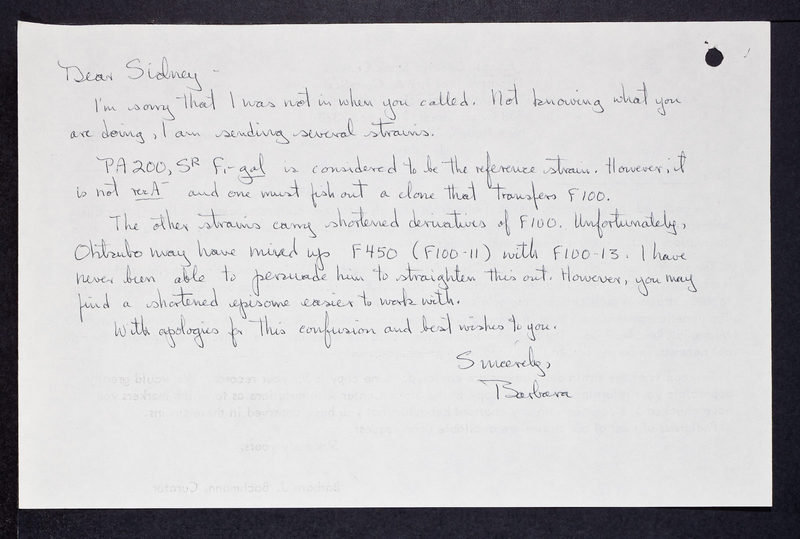 Dear Sidney -
I'm sorry that I was not in when you called. Not knowing what you
are doing, I am sending several strains.
PA200, SR F1-gal is considered to be the reference strain. However, it
is not recA- and one must fish out a clone that transfers F100.
The other strains carry shortened derivatives of F100. Unfortunately,
Ohtsubo may have mixed up F450 (F100-11) with F100-13. I have
never been able to persuade him to straighten this out. However, you may
find a shortened episome easier to work with.
With apologies for this confusion and best wishes to you.
Sincerely,
Barbara
Barbara J. Bachmann, Curator